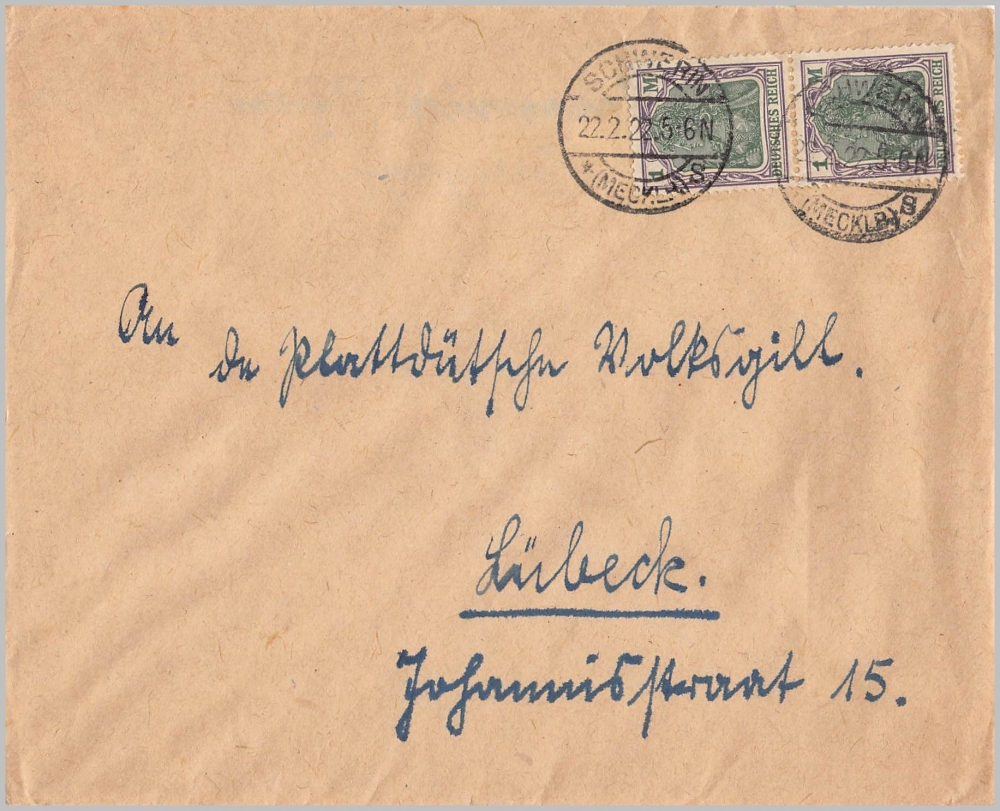 SCHWERIN
22.2.22.5-6N
* (MECKLB) S
1 M
DEUTSCHES REICH
1 M
DEUTSCHES REICH
SCHWERIN
22.5-6N
(MECKLB) S
An
de Plattdütsche Volksgill.
Lübeck.
Johannisstraat 15.